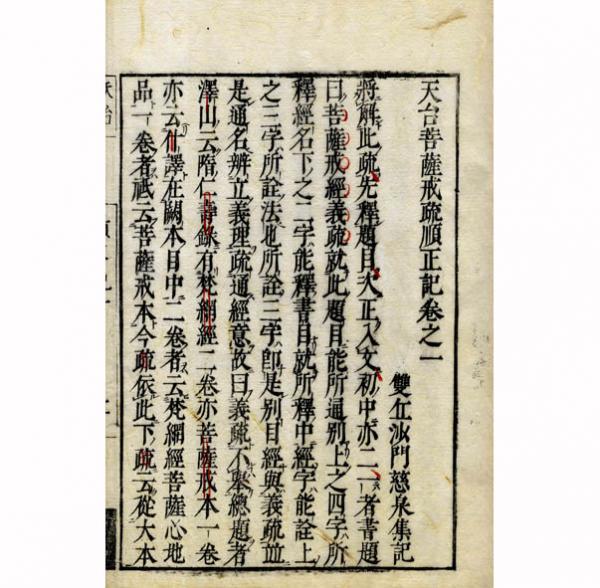 天台菩薩戒疏順正記卷之一
雙丘沙門慈泉集記
將解此疏先釋題目次正入文初中亦二一者書題
曰菩薩戒經義疏就此題目能所通別上之四字所
釋經名下之二字能釋書目就所釋中經字能詮上
之三字所詮法也所詮三字即是別目經與義疏並
是通名辨立義理疏通經意故曰義疏不舉總題者
澤山云隋仁壽錄有梵網經二卷亦菩薩戒本一卷
亦云什譯在闕本目中二卷者云梵網經菩薩心地
品一卷者祇云菩薩戒本今疏依此下疏云從大本